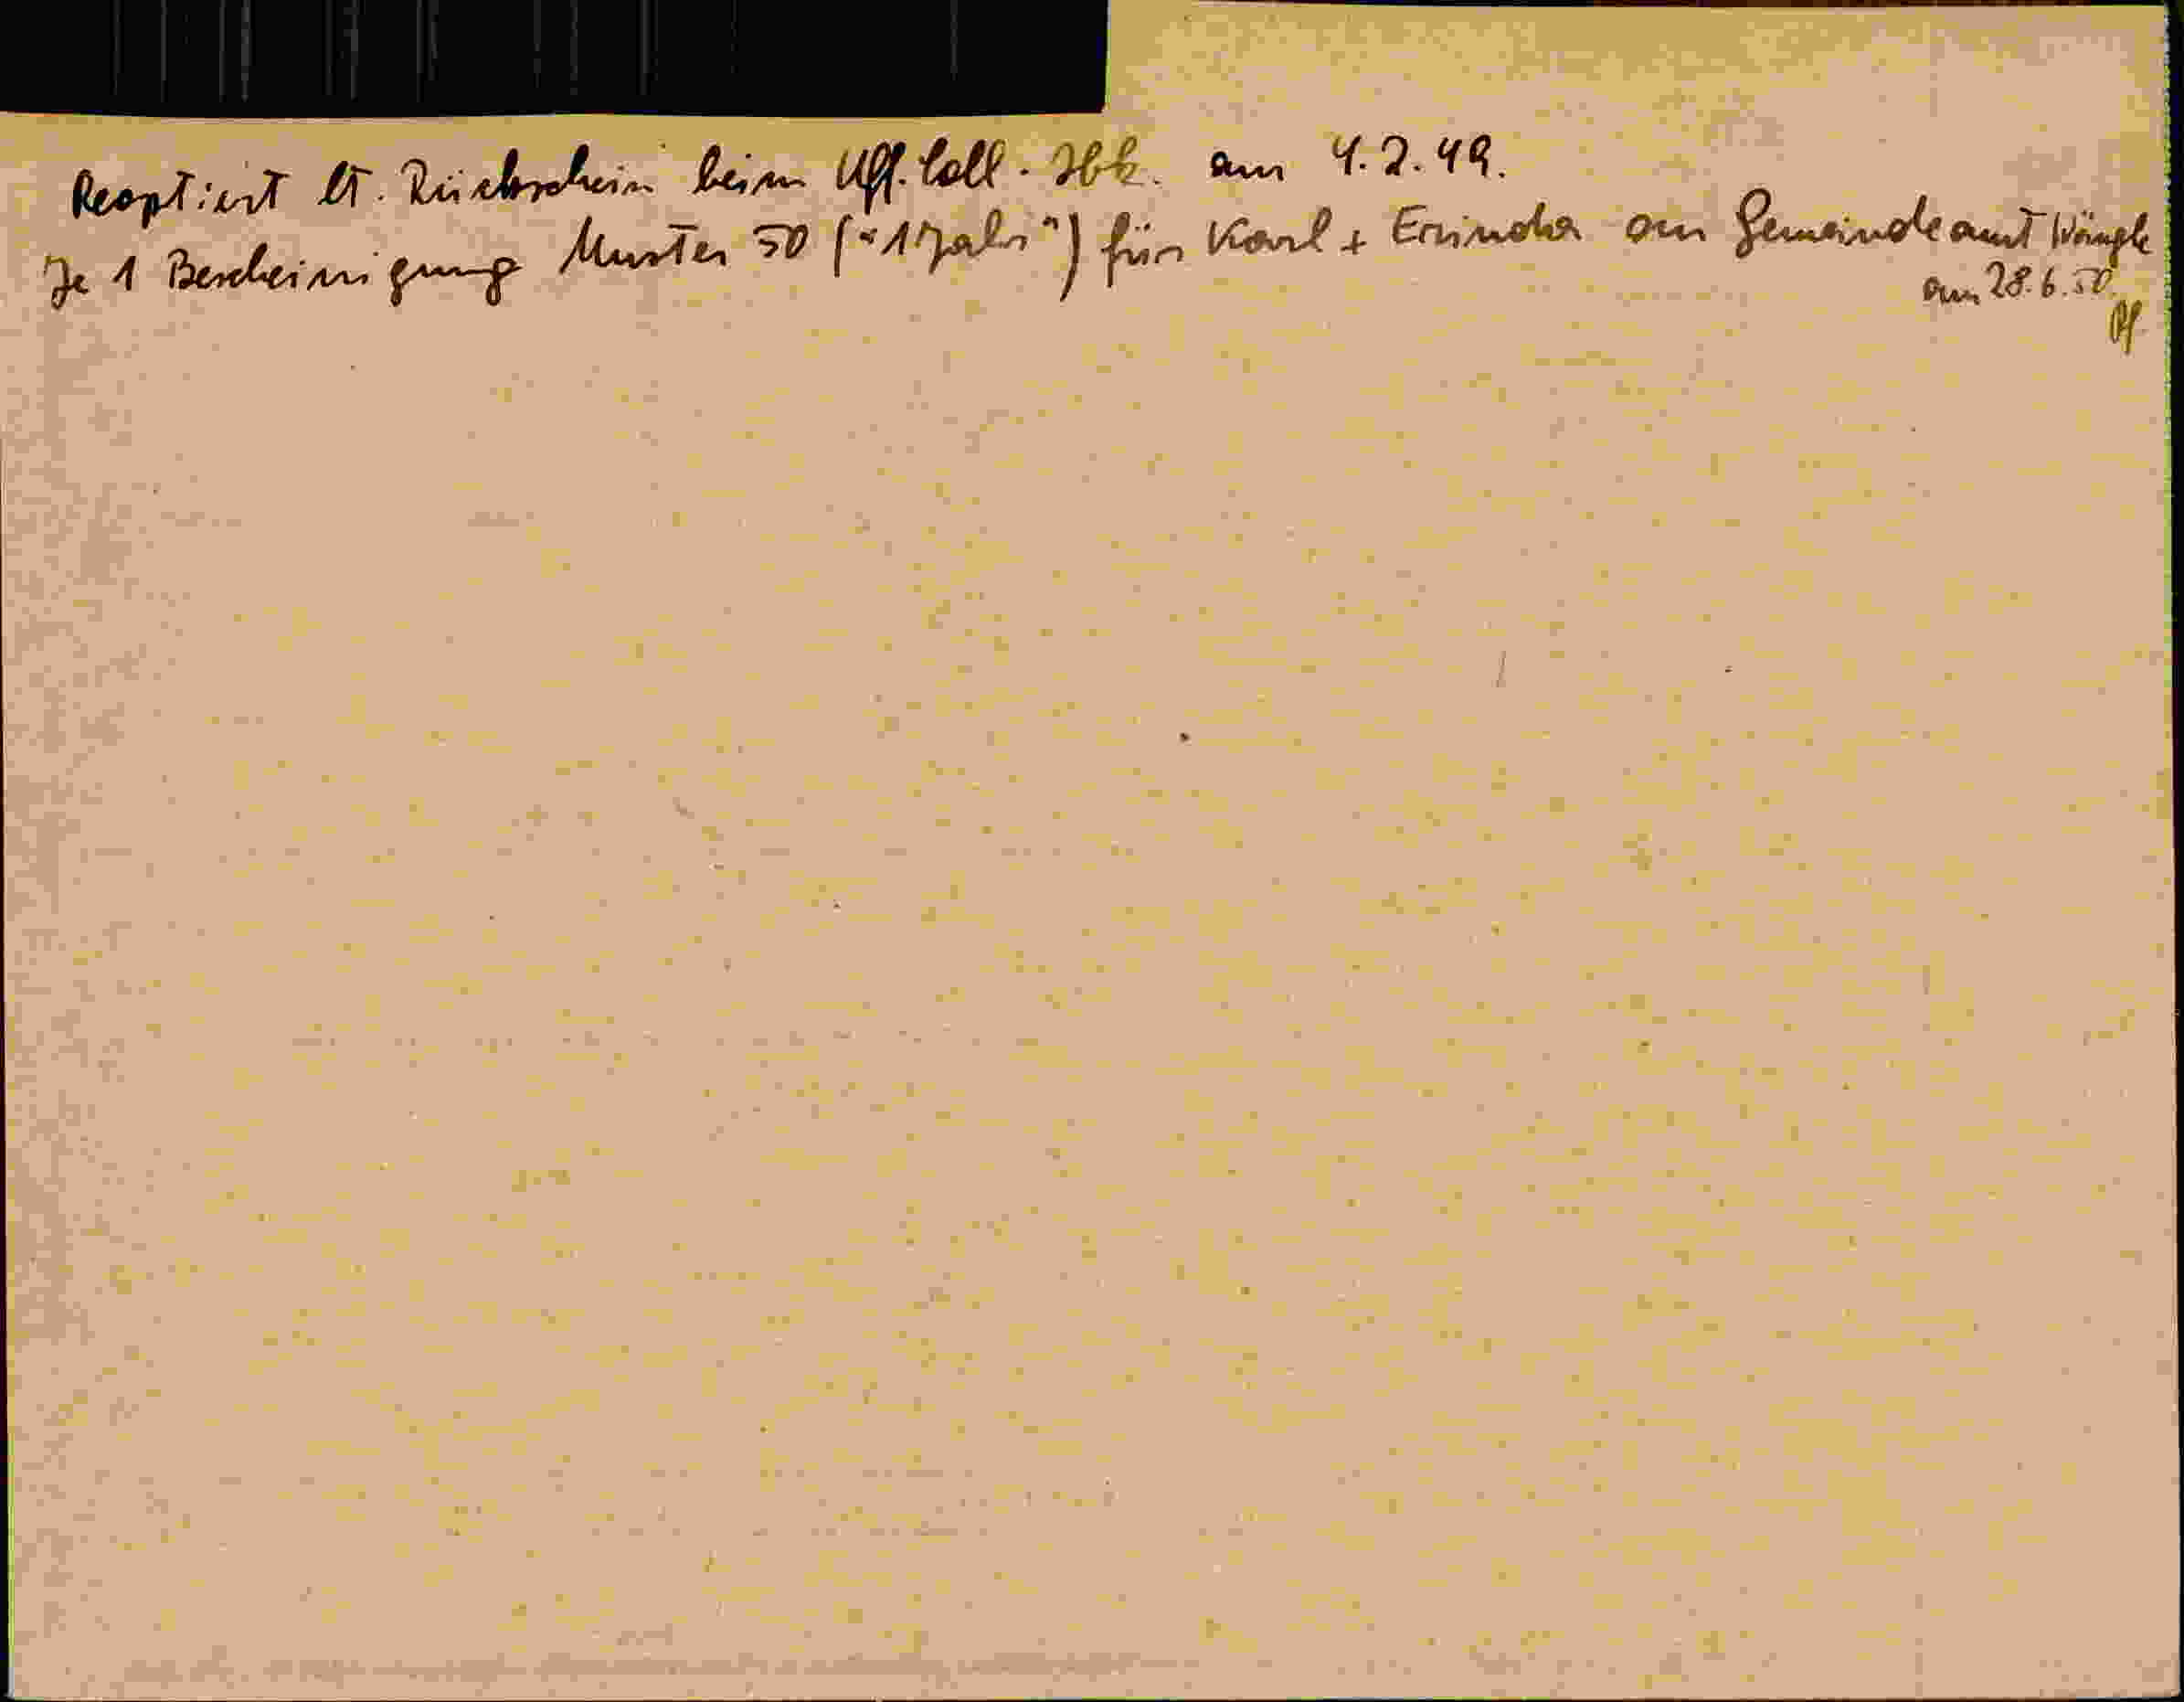 Reoptiert lt. Rückschein beim Uff. Coll. Ibk. am 4.2.49.
Je 1 Bescheinigung Muster 50 ("1 Jahr") für Karl + Erinda an Gemeindeamt Wängle
am 28.6.50